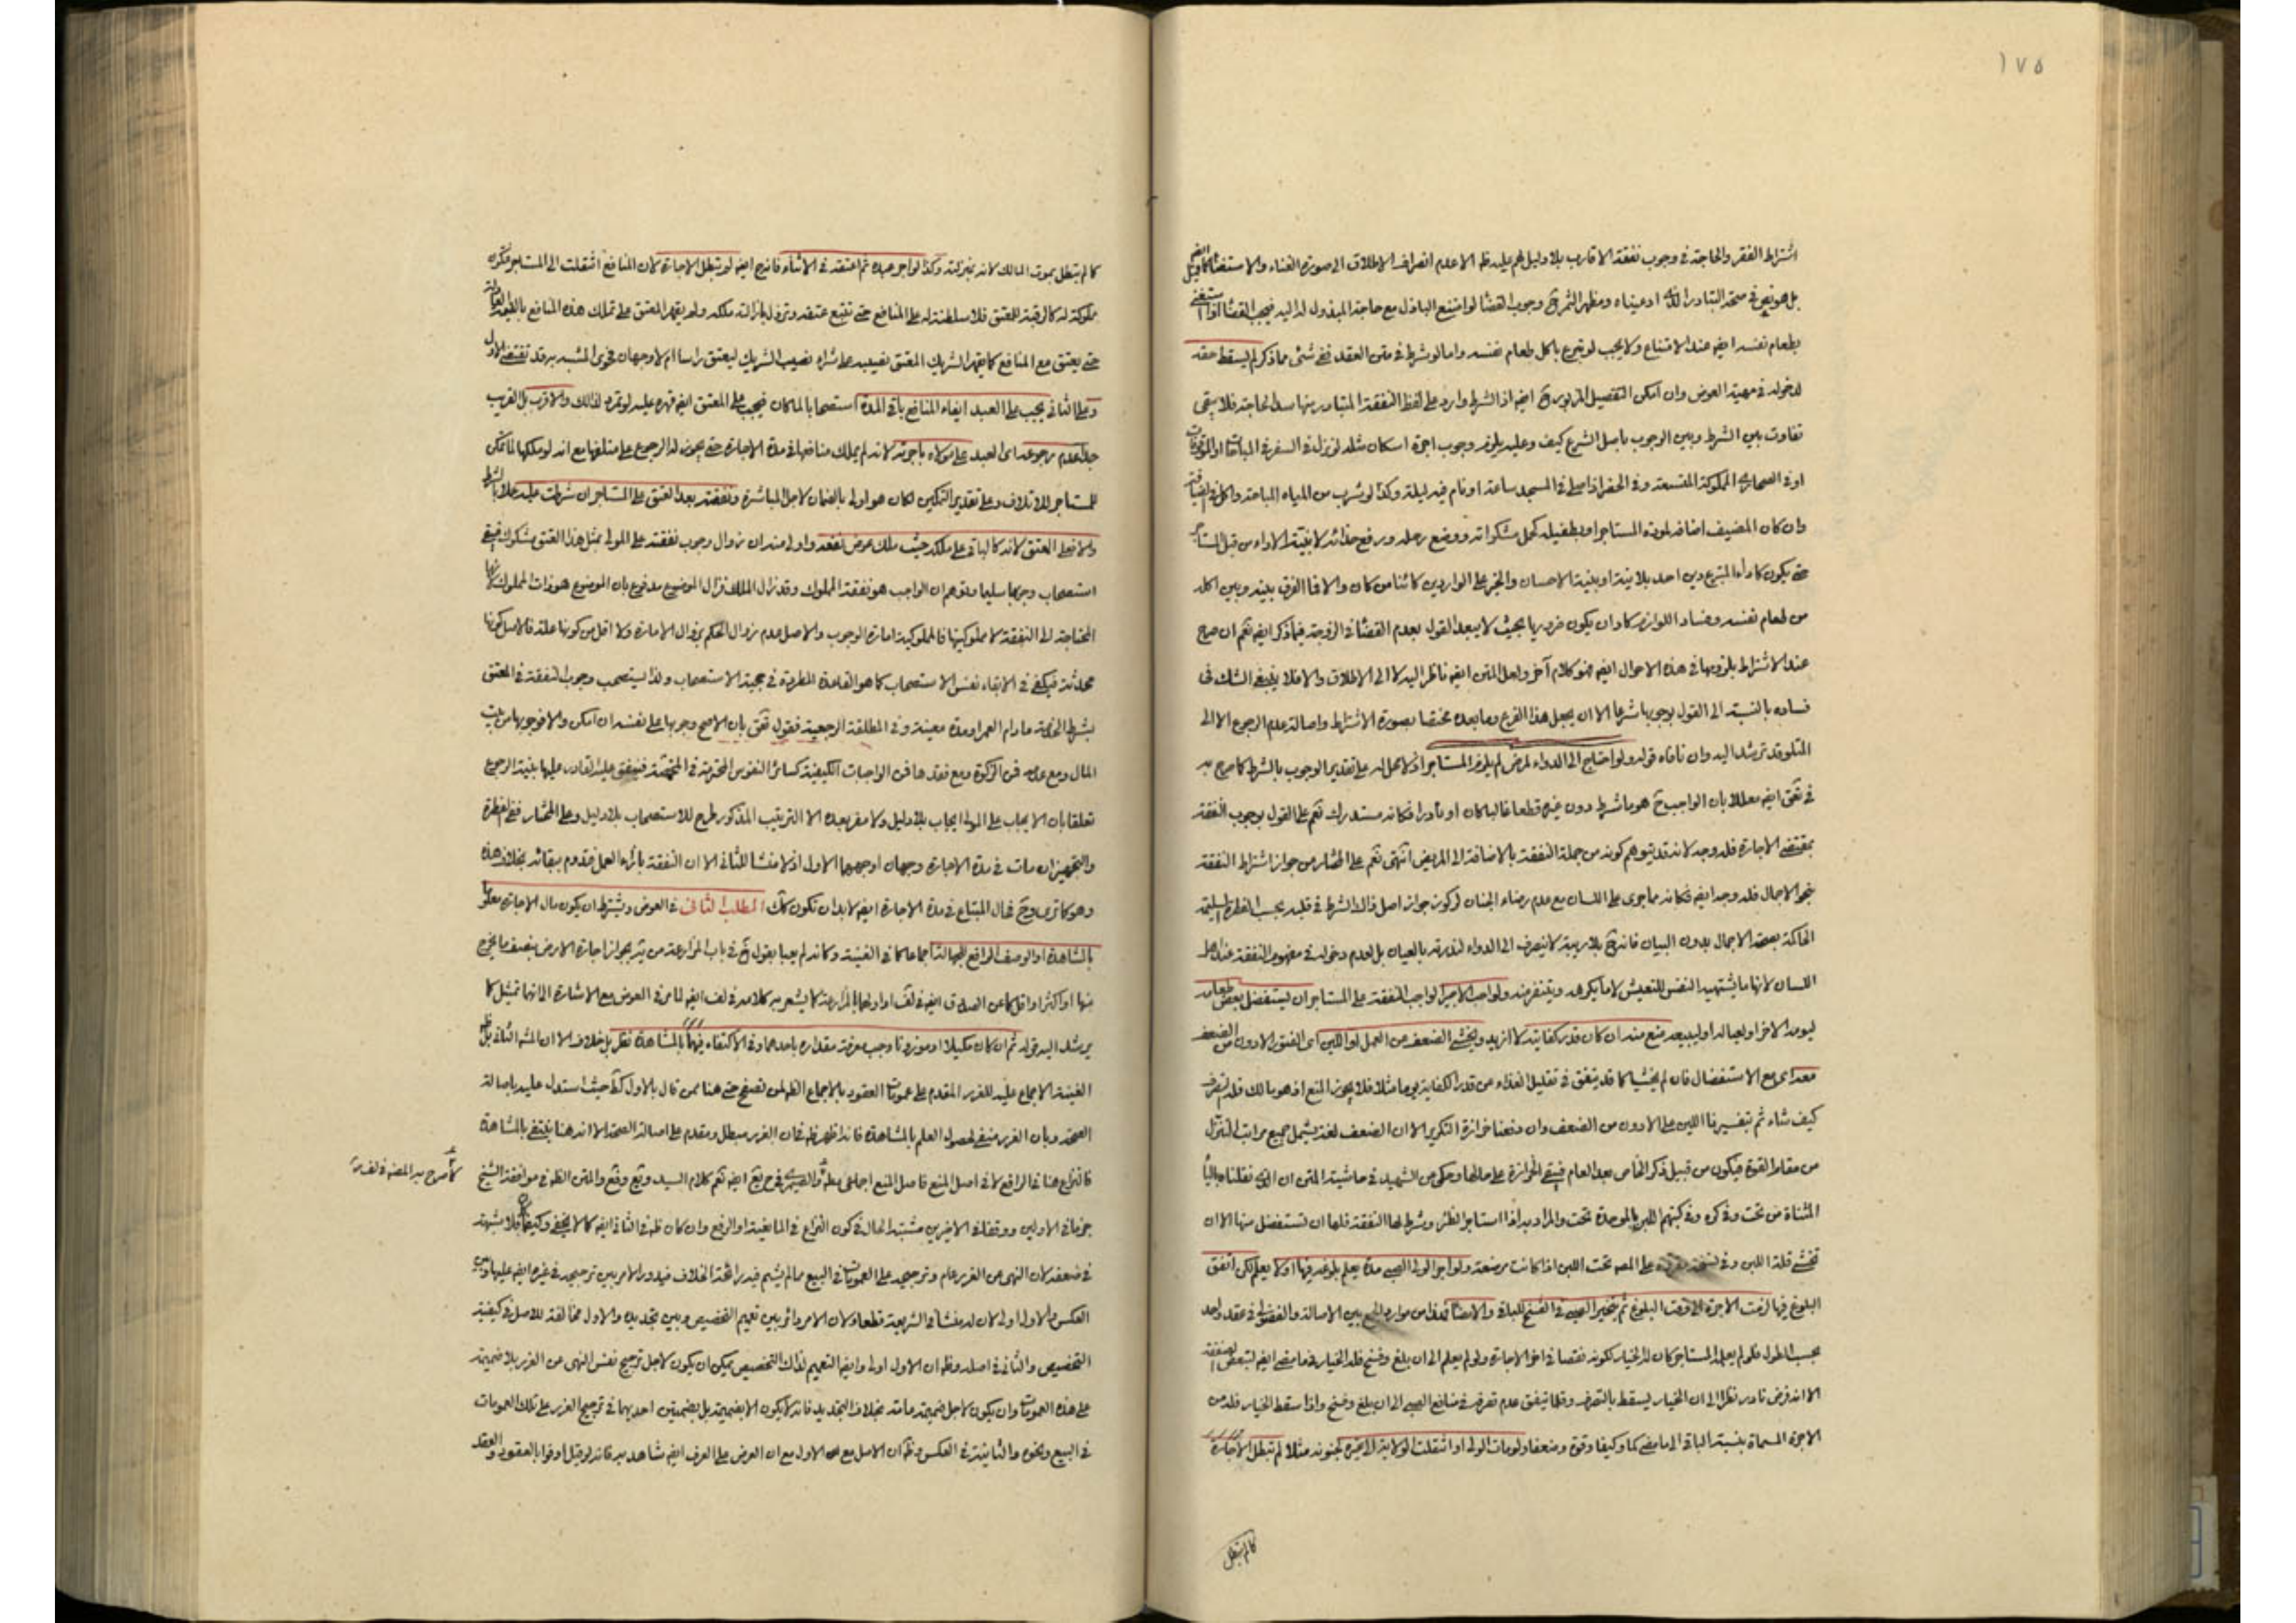 ١٧٥
اشتراط الفقر والحاجة في وجوب نفقة الاقارب بلا دليل لهم عليه ظ الا عدم انصراف الاطلاق الى صورة الغناء والاستغناء
بل هو نص في صحة التبادر الذي ادعيناه ومظهر الثمرة ح وجوب القضا لو امتنع الباذل مع حاجة المبذول له اليه فيجب القضا
بطعام نفسه ايضا عند الامتناع ولا يجب لو تبرع باكل طعام نفسه واما لو شرط في متن العقد فخ شئ مما ذكر لم يسقط حقه
لدخوله في مهية العوض وان امكن التفصيل المزبور ح ايضا اذ الشرط وارد على لفظ النفقة المتبادر منها سد الحاجة فلا يبقى
تفاوت بين الشرط وبين الوجوب باصل الشرع كيف وعليه يلزم وجوب اجرة اسكان مثله لو نزل في السفر في
او في الصحاري المملوكة المتسعة وفي الحضر اذا صلى في المسجد ساعة او نام فيه ليلة وكذا لو شرب من المياه المباحة واكل في
وان كان المضيف اضافه لمودة المستاجر او بطفيله كحمل ووضع رحله ورفع حذائه لا بنية الاداء من قبل
حتى يكون كاداء المتبرع دين احد بلا نية او بنية الاحسان والخير على الواردين كائنا من كان والا فما الفرق بينه وبين اكله
من طعام نفسه وفساد اللوازم كاد ان يكون ضروريا بحيث لا يبعد القول بعدم القضا في الزوجة فيما ذكر ايضا نعم ان صرح
عند الاشتراط بلزومها في هذه الاحوال ايضا فهو كلام آخر ولعل المتن ايضا ناظر اليه لا الى الاطلاق والا فلا ينبغي الشك في
فساده بالنسبة الى القول بوجوبها شرعا الا ان يجعل هذا الفرع وما بعده مختصا بصورة الاشتراط واصالة عدم الرجوع الا الى
المتلو قد ترشد اليه وان نافاه قوله ولو احتاج الى الدواء لمرض لم يلزم المستاجر اذ لا محل له على تقدير الوجوب بالشرط كما صرح به
في ايضا معللا بان الواجب ح هو ما شرط دون غيره قطعا غالبا كان او نادرا فكانه مستدرك نعم على القول بوجوب النفقة
بمقتضى الاجارة فله وجه لانه قد يتوهم كونه من جملة النفقة بالاضافة الى المريض انتهى نعم على المختار من جواز اشتراط النفقة
بنحو الاجمال فله وجه ايضا فكانه مما جرى على اللسان مع عدم رضاء الجنان
الحاكمة بصحة الاجمال بدون البيان فانه ح بلا ريبة لا ينصرف الى الدواء لندرته بالعيان بل لعدم دخوله في مفهوم النفقة عند اهل
اللسان لانها ما يشتهيه النفس للتعيش لا ما يكرهه ويتنفر منه ولو احب الاجير الواجب النفقة على المستاجر ان يستفضل بعض طعامه
ليومه الاخر او لعياله او ليبيعه منع منه ان كان قدر كفايته لا ازيد ويخشى الضعف عن العمل لو
معه اي مع الاستفضال فان لم يخشيا كما قد يتفق في تقليل الغذاء عن قدر الكفاية يوما مثلا فلا يجوز المنع اذ هو مالك فله
كيف شاء ثم بتفسيرنا اللين على الادون من الضعف وان دفعنا حزازة التكرير الا ان الضعف لغة يشمل جميع مراتب التنزل
من مقام القوة فيكون من قبيل ذكر الخاص بعد العام فيبقى الحزازة على حالها وحكي عن الشهيد في حاشية المتن ان
المثناة من تحت وفي كره وفي كتبهم اللبن بالموحدة تحت والمراد به اذا استاجر الظئر وشرط لها النفقة فلها ان تستفضل منها الا ان
تخشى قلة اللبن وفي نسخة على المصه تحت اللبن اذا كانت مرضعة ولو اجر الولي الصبي مدة يعلم بلوغه فيها او لا يعلم لكن اتفق
البلوغ فيها لزمت الاجرة الى وقت البلوغ ثم يتخير الصبي في الفسخ للباقي والامضا فهذا من موارد الجمع بين الاصالة والفضولي في عقد واحد
بحسب الطول فلو لم يعلم المستاجر كان له الخيار لكونه نقصا في اخر الاجارة ولو لم يعلم الى ان بلغ وفسخ فله الخيار فيما مضى ايضا لتبعض الصفقة
الا انه فرض نادر نظرا الى ان الخيار يسقط بالتصرف وقلما يتفق عدم تصرفه في منافع الصبي الى ان بلغ وفسخ واذا سقط الخيار فله من
الاجرة المسماة بنسبة الباقي الى ما مضى كما وكيفا وقوة وضعفا ولو مات الولي او انتقلت الولاية الى غيره لجنونه مثلا لم تبطل الاجارة
كما لم تبطل
كما لم تبطل بموت المالك لانه بمنزلته وكذا لو اجر عبده ثم اعتقه في الاثناء فانه ح ايضا لم تبطل الاجارة لان المنافع انتقلت الى المستاجر
مملوكة له كالرقبة للمعتق فلا سلطنة له على المنافع حتى تتبع عتقه وتزول بازالته ملكه ولم يقهر المعتق على تملك هذه المنافع
حتى يعتق مع المنافع كما يقهر الشريك المعتق نصيبه على شراء نصيب الشريك ليعتق راسا ام لا وجهان فحوى المشبه به قد تقتضي الاول
وعلى الثاني يجب على العبد ايفاء المنافع باقي المدة استصحابا لما كان فيجب على المعتق ايضا قهره عليه لو تمرد لذلك والاقرب بل القريب
جدا عدم رجوعه اي العبد على مولاه باجرته لانه لم يملك منافعها في مدة الاجارة حتى يجوز له الرجوع على متلفها مع انه لو ملكها
للمستاجر للاتلاف وعلى تقدير التمكين لكان هو اولى بالضمان لاجل المباشرة ونفقته بعد العتق على المستاجر ان شرطت عليه عملا بالشرط
والا فعلى المعتق لانه كالباقي على ملكه حيث ملك عوض نفعه واولى منه ان زوال وجوب نفقته على المولى بمثل هذا العتق مشكوك فيبقى
استصحاب وجوبها سليما وتوهم ان الواجب هو نفقة المملوك وقد زال الملك فزال الموضوع مدفوع بان الموضوع هو ذات المملوك
المحتاجة الى النفقة لا مملوكيتها فالمملوكية امارة الوجوب والاصل عدم زوال الحكم بزوال الامارة ولا اقل من كونها علة فالاصل كونها
محدثة فيكفي في الابقاء نفس الاستصحاب كما هو القاعدة المطردة في حجية الاستصحاب ولذا يستصحب وجوب النفقة في المعتق
بشرط الخدمة مادام العمر او مدة معينة وفي المطلقة الرجعية فقول بان الاصح وجوبها على نفسه ان امكن والا فوجوبها من بيت
المال ومع عدمه فمن الزكوة ومع فقدها فمن الواجبات الكفيفية كسائر النفوس المحترمة في المخمصة فينفق عليه القادر عليها بنية الرجوع
تعلقا بان الايجاب على المولى ايجاب بلا دليل ولا مفر بعده الا الترتيب المذكور طرح للاستصحاب بلا دليل وعلى المختار ففي الفطرة
والتجهيز ان مات في مدة الاجارة وجهان اوجههما الاول اذ لا منشا للثاني الا ان النفقة بازاء العمل فتدوم ببقائه بخلاف هذه
وهو كما ترى وح فحال المبتاع في مدة الاجارة ايضا لابد ان تكون كك المطلب الثاني في العوض ويشترط ان يكون مال الاجارة معلوما
بالمشاهدة او الوصف الرافع للجهالة اجماعا كما في الغنية وكانه لم يعبا بقول ح في باب المزارعة من بجواز اجارة الارض بنصف ما يخرج
منها او اكثر او اقل كما عن الصدوق ايضا في لف او اولها بالمزارعة كما يشعر به كلامه في لف ايضا لما من في العوض مع الاشارة الى انها تمثيل كما
يرشد اليه قوله ثم ان كان مكيلا او موزونا وجب معرفة مقداره باحدهما وفي الاكتفاء فيهما بالمشاهدة نظر بل خلاف الا ان المشه الثاني بل
الغنية الاجماع عليه للغرر المقدم على عمومات العقود بالاجماع حتى هنا ممن قال بالاول حيث استدل عليه باصالة
الصحة وبان الغرر منفي لحصول العلم بالمشاهدة فانه اظهر ظ في ان الغرر مبطل ومقدم على اصالة الصحة الا انه هنا ينتفي بالمشاهدة
فالنزاع هنا في الرافع لا في اصل المنع فاصل المنع اجماعي ايضا نعم كلام السيد والمتن الظ في موافقة الشيخ
لما صرح به المصه في لف
جزما في الاولين ووقفا في الاخيرين مشتبه الحال في كون النزاع في المانعية او الرفع وان كان ظ في الثاني ايضا كما لا يخفى وكيف كان فلا شبهة
في ضعفه لان النهي عن الغرر عام وترجيحه على العمومات في البيع مما لم يشم فيه رائحة الخلاف فيدور الامر بين ترجيحه في غيره ايضا عليها وبين
العكس والاول اولى لان له منشا في الشريعة قطعا ولان الامر دائر بين تعميم التخصيص وبين تجديده والاول مخالفة للاصل في كيفية
التخصيص والثاني في اصله وظ ان الاول اولى وايضا التعميم لذلك التخصيص يمكن ان يكون لاجل ترجيح نفس النهي عن الغرر بلا ضميمة
على هذه العمومات وان يكون لاجل ضميمة عامة بخلاف التجديد فانه لا يكون الا بضميمة بل بضميمتين احديهما في ترجيح الغرر على تلك العمومات
في البيع ونحوه والثانية في العكس وظ ان الاصل مع الاول مع ان العرض على العرف ايضا شاهد به فانه لو قيل اوفوا بالعقود والعقد